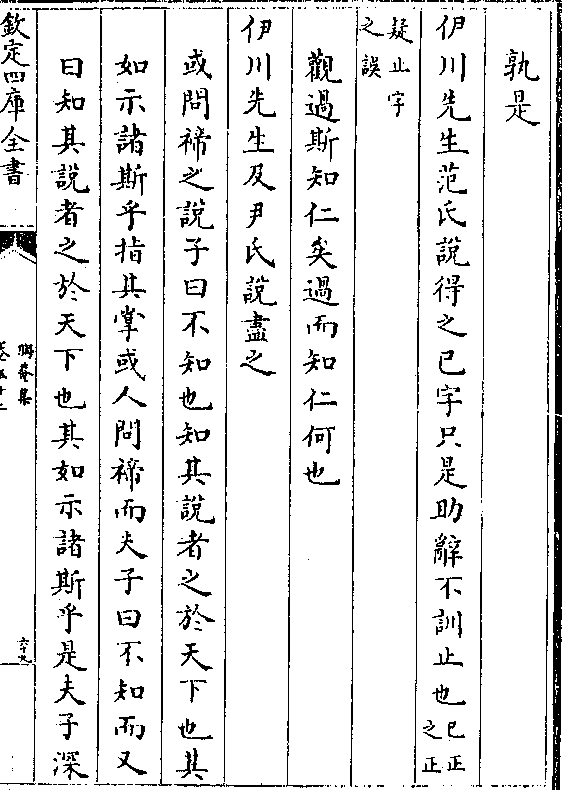 孰是
伊川先生范氏說得之已字只是助辭不訓止也已正之正
疑止字之誤
觀過斯知仁矣過而知仁何也
伊川先生及尹氏說盡之
或問禘之說子曰不知也知其說者之於天下也其
如示諸斯乎指其掌或人問禘而夫子曰不知而又
曰知其說者之於天下也其如示諸斯乎是夫子深
欽定四庫全書
晦菴集
六十九